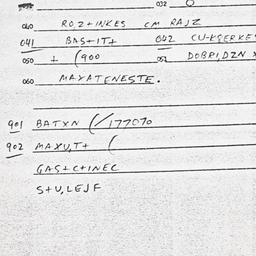 032 O
040 ROZ+INKES CM RAJZ
041 BAS+IT+ 042 CU-KSERKES
050 + (900 052 DOBRI,DZN
060 MAYATENESTE.
901 BATXN (/177070
902 MAXU,T+ (
GAS+C+INEC
S+U,LEJF